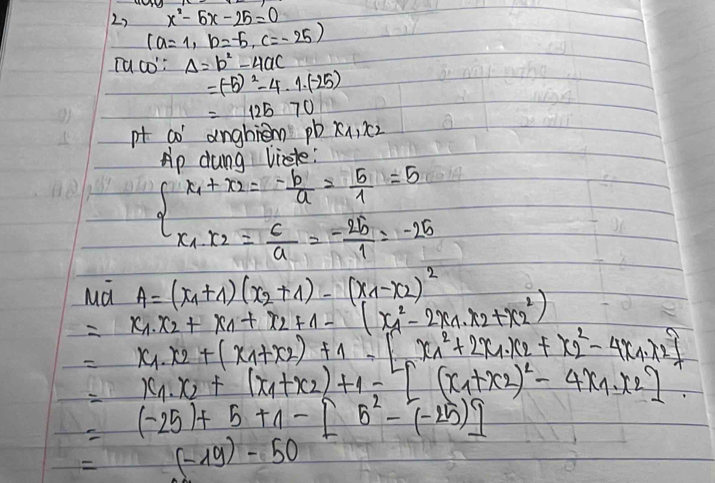 2, x² - 5x - 25 = 0
(a = 1, b = -5, c = -25)
Ta có: Δ = b² - 4ac
= (-5)² - 4.1.(-25)
= 125 > 0
pt có 2 nghiệm pb x1, x2
Áp dụng Viète:
x1 + x2 = -b/a = 5/1 = 5
x1.x2 = c/a = -25/1 = -25
Mà A = (x1+1)(x2+1) - (x1-x2)²
= x1.x2 + x1 + x2 + 1 - (x1² - 2x1.x2 + x2²)
= x1.x2 + (x1+x2) + 1 - [x1² + 2x1.x2 + x2² - 4x1.x2]
= x1.x2 + (x1+x2) + 1 - [(x1+x2)² - 4x1.x2].
= (-25) + 5 + 1 - [5² - (-25)]
= (-19) - 50